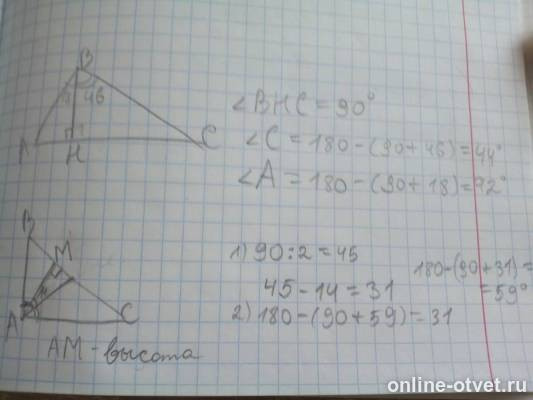 B
46
A
H
C
∠BHC = 90°
∠C = 180-(90+46)=44°
∠A = 180-(90+18)=72°
B
M
A
C
AM - высота
1) 90:2=45
45-14=31
2) 180-(90+59)=31
180-(90+31)=
=59°
online-otvet.ru